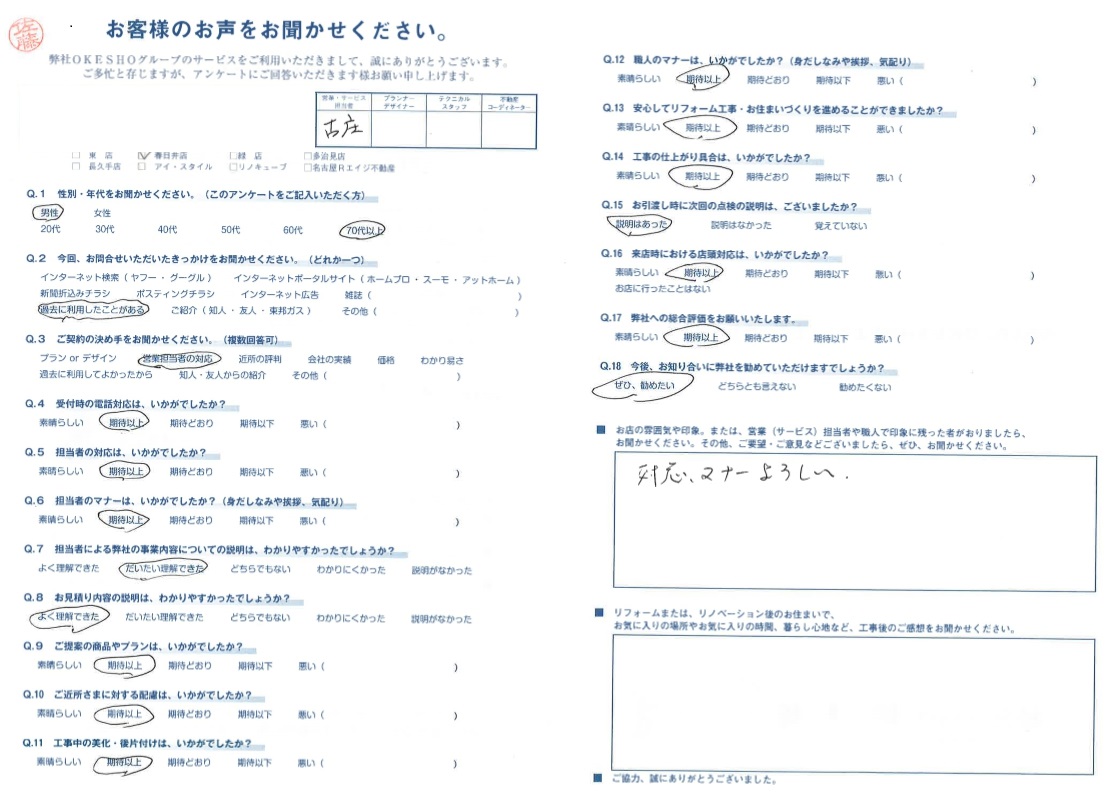 佐藤
お客様のお声をお聞かせください。
弊社OKESHOグループのサービスをご利用いただきまして、誠にありがとうございます。
ご多忙と存じますが、アンケートにご回答いただきます様お願い申し上げます。
営業・サービス担当者 プランナーデザイナー テクニカルスタッフ 不動産コーディネーター
古庄
□ 東 店 ☑ 春日井店 □ 緑 店 □ 多治見店
□ 長久手店 □ アイ・スタイル □ リノキューブ □ 名古屋Rエイジ不動産
Q.1 性別・年代をお聞かせください。（このアンケートをご記入いただく方）
男性 女性
20代 30代 40代 50代 60代 70代以上
Q.2 今回、お問合せいただいたきっかけをお聞かせください。（どれか一つ）
インターネット検索（ ヤフー ・ グーグル ） インターネットポータルサイト（ ホームプロ ・ スーモ ・ アットホーム ）
新聞折込みチラシ ポスティングチラシ インターネット広告 雑誌（ ）
過去に利用したことがある ご紹介（ 知人 ・ 友人 ・ 東邦ガス ） その他（ ）
Q.3 ご契約の決め手をお聞かせください。（複数回答可）
プラン or デザイン 営業担当者の対応 近所の評判 会社の実績 価格 わかり易さ
過去に利用してよかったから 知人・友人からの紹介 その他（ ）
Q.4 受付時の電話対応は、いかがでしたか？
素晴らしい 期待以上 期待どおり 期待以下 悪い（ ）
Q.5 担当者の対応は、いかがでしたか？
素晴らしい 期待以上 期待どおり 期待以下 悪い（ ）
Q.6 担当者のマナーは、いかがでしたか？（身だしなみや挨拶、気配り）
素晴らしい 期待以上 期待どおり 期待以下 悪い（ ）
Q.7 担当者による弊社の事業内容についての説明は、わかりやすかったでしょうか？
よく理解できた だいたい理解できた どちらでもない わかりにくかった 説明がなかった
Q.8 お見積り内容の説明は、わかりやすかったでしょうか？
よく理解できた だいたい理解できた どちらでもない わかりにくかった 説明がなかった
Q.9 ご提案の商品やプランは、いかがでしたか？
素晴らしい 期待以上 期待どおり 期待以下 悪い（ ）
Q.10 ご近所さまに対する配慮は、いかがでしたか？
素晴らしい 期待以上 期待どおり 期待以下 悪い（ ）
Q.11 工事中の美化・後片付けは、いかがでしたか？
素晴らしい 期待以上 期待どおり 期待以下 悪い（ ）
Q.12 職人のマナーは、いかがでしたか？（身だしなみや挨拶、気配り）
素晴らしい 期待以上 期待どおり 期待以下 悪い（ ）
Q.13 安心してリフォーム工事・お住まいづくりを進めることができましたか？
素晴らしい 期待以上 期待どおり 期待以下 悪い（ ）
Q.14 工事の仕上がり具合は、いかがでしたか？
素晴らしい 期待以上 期待どおり 期待以下 悪い（ ）
Q.15 お引渡し時に次回の点検の説明は、ございましたか？
説明はあった 説明はなかった 覚えていない
Q.16 来店時における店頭対応は、いかがでしたか？
素晴らしい 期待以上 期待どおり 期待以下 悪い（ ）
お店に行ったことはない
Q.17 弊社への総合評価をお願いいたします。
素晴らしい 期待以上 期待どおり 期待以下 悪い（ ）
Q.18 今後、お知り合いに弊社を勧めていただけますでしょうか？
ぜひ、勧めたい どちらとも言えない 勧めたくない
■ お店の雰囲気や印象。または、営業（サービス）担当者や職人で印象に残った者がおりましたら、
お聞かせください。その他、ご要望・ご意見などございましたら、ぜひ、お聞かせください。
対応、マナーよろしい.
■ リフォームまたは、リノベーション後のお住まいで、
お気に入りの場所やお気に入りの時間、暮らし心地など、工事後のご感想をお聞かせください。
■ ご協力、誠にありがとうございました。